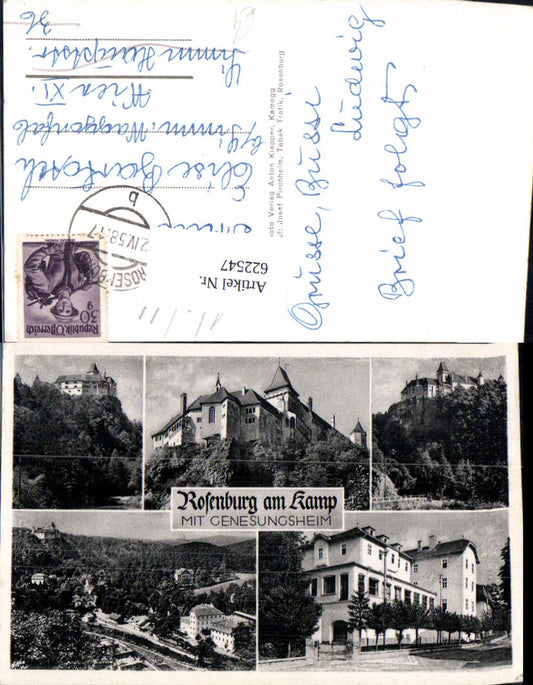 Grüsse, Büsse
Ludwig
Brief folgt,
Foto Verlag Anton Klapper, Kamegg
Josef Pirchheim, Tabak Trafik, Rosenburg
Elise
Wien XI.
Simm. Hauptstr.
36
Artikel Nr.
622547
2.IV.58.17
b
30 g
Republik Österreich
Rosenburg am Kamp
MIT GENESUNGSHEIM